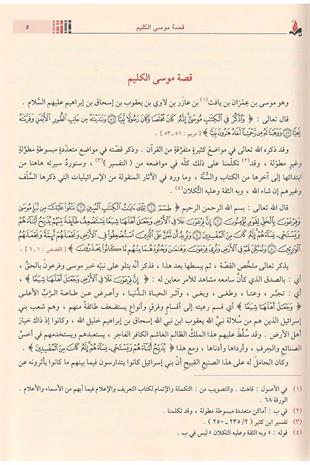 قصة موسى الكليم
٥
قصة موسى الكليم
وهو موسى بن عِمْرَان بن يافث(١) بن عازر بن لاوي بن يعقوب بن إسحاق بن إبراهيم عليهم السلام .
قال تعالى : ﴿ وَاذْكُرْ فِي الْكِتَابِ مُوسَى إِنَّهُ كَانَ مُخْلَصًا وَكَانَ رَسُولًا نَّبِيًّا وَنَادَيْنَاهُ مِن جَانِبِ الطُّورِ الْأَيْمَنِ وَقَرَّبْنَاهُ
نَجِيًّا وَوَهَبْنَا لَهُ مِن رَّحْمَتِنَا أَخَاهُ هَارُونَ نَبِيًّا ﴾ [ مريم : ٥١ - ٥٣ ] .
وقد ذكره الله تعالى في مواضعَ كثيرة متفرّقةٍ من القرآن . وذكر قصته في مواضع متعدّدة مبسوطة مطوَّلة
وغير مطوّلة ، وقد(٢) تكلّمنا على ذلك كلّه في مواضعه من ( التفسير )(٣) ، وسنورد سيرته هاهنا من
ابتدائها إلى آخرها من الكتاب والسُّنّة ، وما ورد في الآثار المنقولة من الإسرائيليات التي ذكرها السلَف
وغيرهم إن شاء الله ، وبه الثقة وعليه التُّكلان(٤) .
قال الله تعالى : بسم الله الرحمن الرحيم ﴿ طسم تِلْكَ آيَاتُ الْكِتَابِ الْمُبِينِ نَتْلُوا عَلَيْكَ مِن نَّبَإِ مُوسَى
وَفِرْعَوْنَ بِالْحَقِّ لِقَوْمٍ يُؤْمِنُونَ إِنَّ فِرْعَوْنَ عَلَا فِي الْأَرْضِ وَجَعَلَ أَهْلَهَا شِيَعًا يَسْتَضْعِفُ طَائِفَةً مِّنْهُمْ يُذَبِّحُ أَبْنَاءَهُمْ
وَيَسْتَحْيِي نِسَاءَهُمْ إِنَّهُ كَانَ مِنَ الْمُفْسِدِينَ وَنُرِيدُ أَن نَّمُنَّ عَلَى الَّذِينَ اسْتُضْعِفُوا فِي الْأَرْضِ وَنَجْعَلَهُمْ أَئِمَّةً وَنَجْعَلَهُمُ
الْوَارِثِينَ وَنُمَكِّنَ لَهُمْ فِي الْأَرْضِ وَنُرِيَ فِرْعَوْنَ وَهَامَانَ وَجُنُودَهُمَا مِنْهُم مَّا كَانُوا يَحْذَرُونَ ﴾ [ القصص : ١ - ٦ ] .
يذكر تعالى ملخّص القصة ، ثم يبسطها بعد هذا ، فذكر أنه يتلو على نبيّه خبر موسى وفرعون بالحقّ ،
أي : بالصدق الذي كأنّ سامعه مشاهد للأمر معاين له : ﴿ إِنَّ فِرْعَوْنَ عَلَا فِي الْأَرْضِ وَجَعَلَ أَهْلَهَا شِيَعًا ﴾ ،
أي : تجبّر ، وعتا ، وطغى ، وبغى ، وآثر الحياة الدُّنيا ، وأعرض عن طاعة الربِّ الأعلى
﴿ وَجَعَلَ أَهْلَهَا شِيَعًا ﴾ ، أي : قسم رعيته إلى أقسام وفرق وأنواع يستضعف طائفة منهم ، وهم شعب بني
إسرائيل الذين هم من سلالة نبيّ الله يعقوب ابن نبي الله إسحاق بن إبراهيم خليل الله ، وكانوا إذ ذاك خيارَ
أهل الأرض . وقد سُلّط عليهم هذا الملك الظالم الغاشم الكافر الفاجر ، يستعبدهم ويستخدمهم في أخسِّ
الصنائع والحِرف ، وأردأها وأدناها ، ومع هذا ﴿ يُذَبِّحُ أَبْنَاءَهُمْ وَيَسْتَحْيِي نِسَاءَهُمْ إِنَّهُ كَانَ مِنَ الْمُفْسِدِينَ ﴾ .
وكان الحاملَ له على هذا الصنيع القبيح أنّ بني إسرائيل كانوا يتدارسون فيما بينهم ما كانوا يأثرونه عن
(١) في الأصول : قاهث . والتصويب من : التكملة والإتمام لكتاب التعريف والإعلام فيما أبهم من الأسماء والأعلام .
الورقة ٦٨ .
(٢) في ب : أماكن متعددة مبسوطة مطولة ، وقد تكلمنا .
(٣) تفسير ابن كثير ( ٢ / ٢٣٥ - ٢٥٠ )
(٤) قوله : « وبه الثقة وعليه التكلان » ليس في ب .